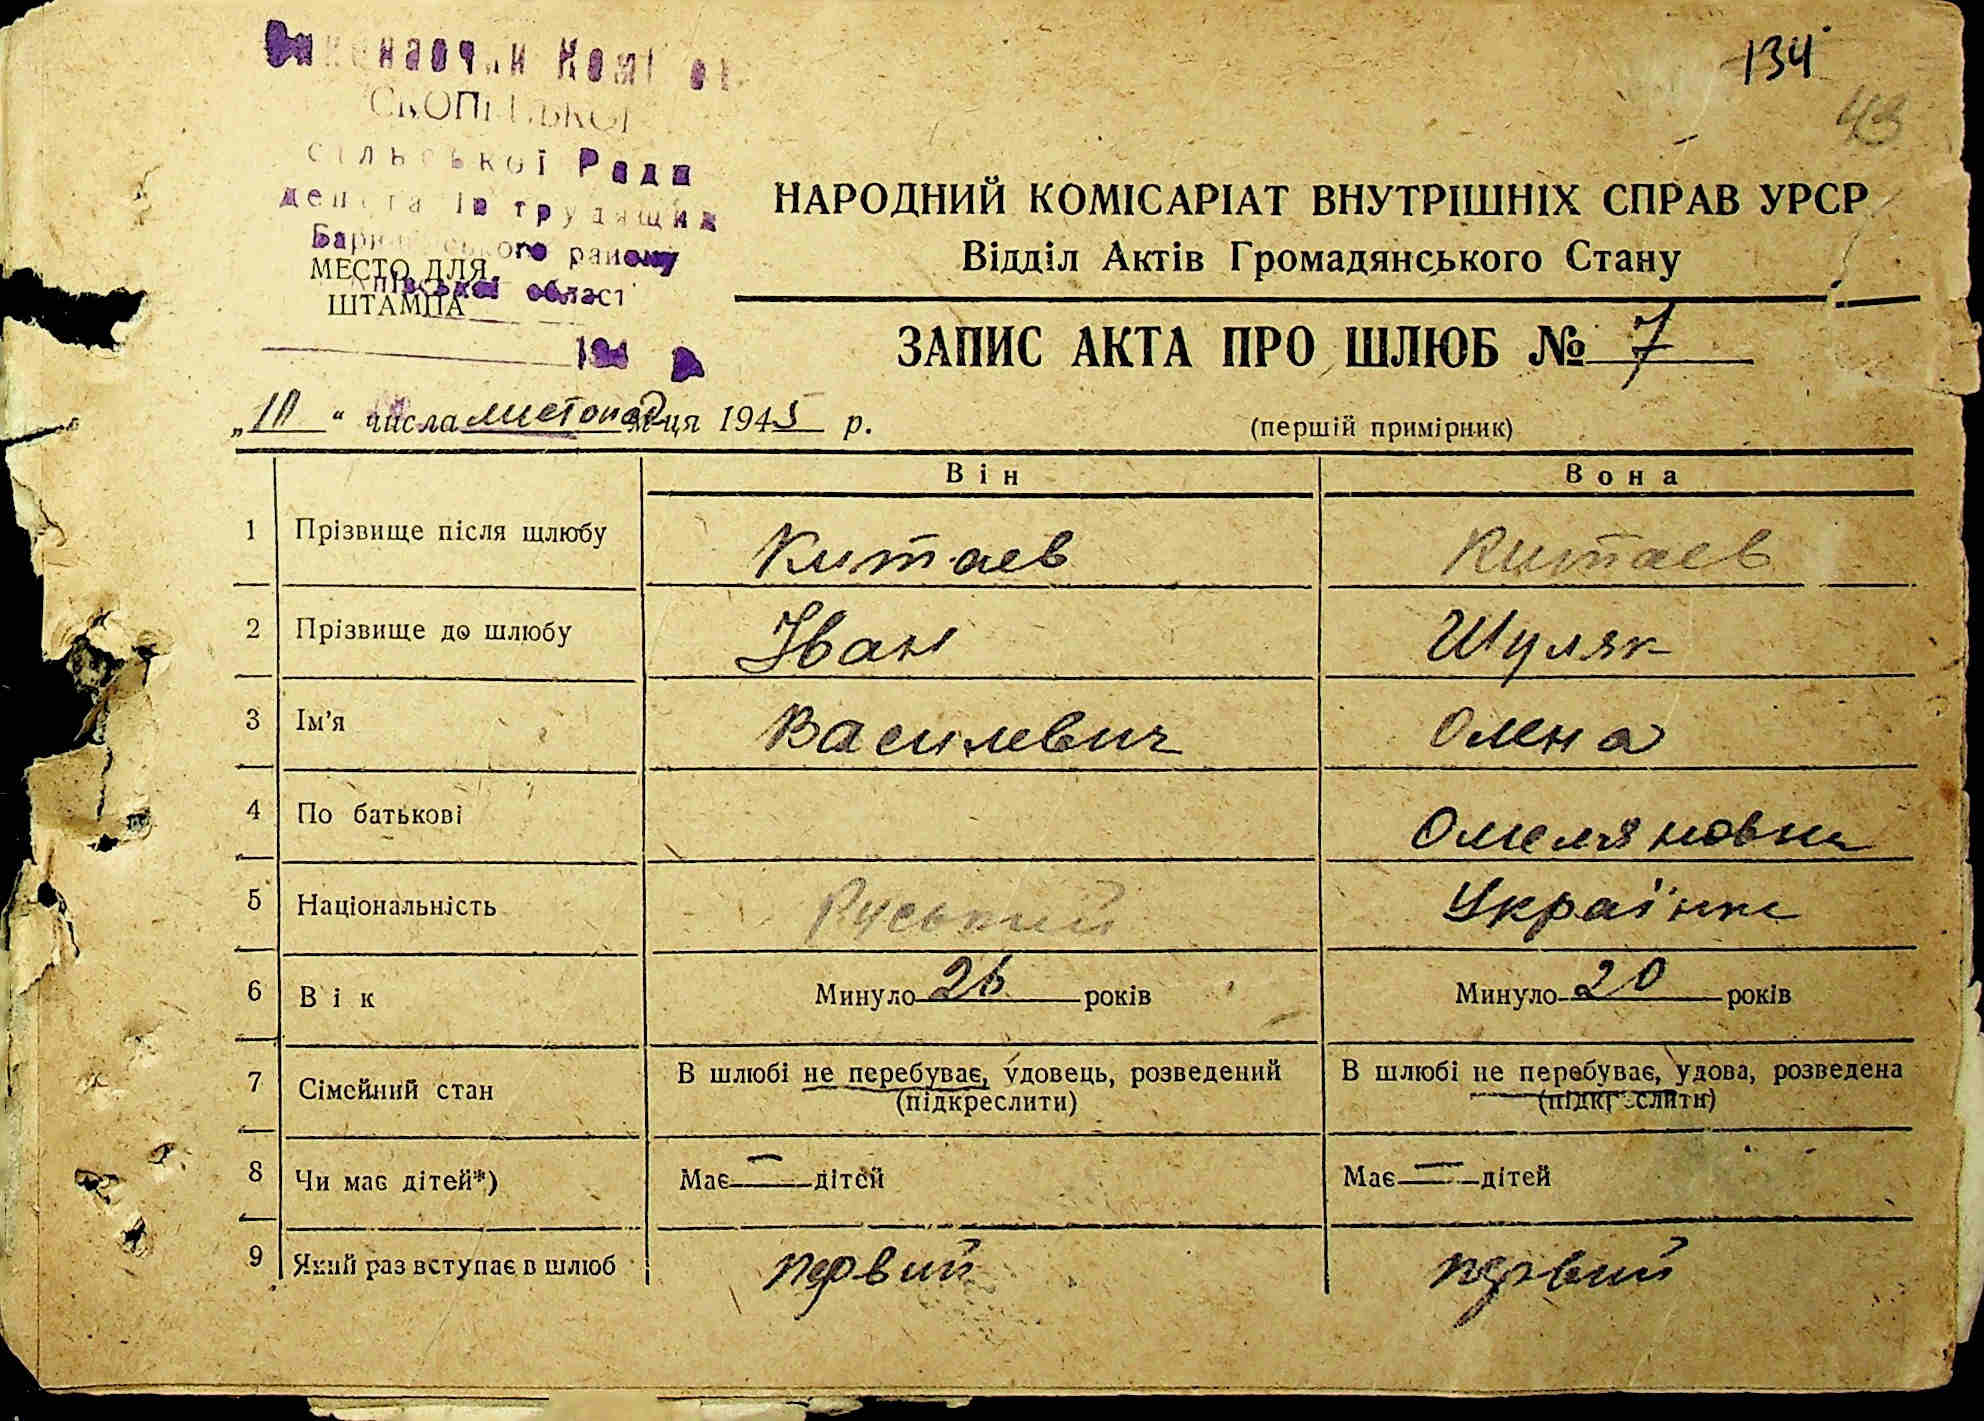 134
43
сільської Ради
депутатів трудящих
району
області
МЕСТО ДЛЯ
ШТАМПА
НАРОДНИЙ КОМІСАРІАТ ВНУТРІШНІХ СПРАВ УРСР
Відділ Актів Громадянського Стану
ЗАПИС АКТА ПРО ШЛЮБ № 7
„10“ числа листопад м-ця 1945 р. (першій примірник)
Він Вона
1 Прізвище після шлюбу Китаев Китаев
2 Прізвище до шлюбу Іван Шуляк
3 Ім'я Василевич Олена
4 По батькові Омеляновна
5 Національність Руський Українка
6 Вік Минуло 26 років Минуло 20 років
7 Сімейний стан В шлюбі не перебуває, удовець, розведений В шлюбі не перебуває, удова, розведена
(підкреслити) (підкреслити)
8 Чи має дітей*) Має — дітей Має — дітей
9 Який раз вступає в шлюб первий первий